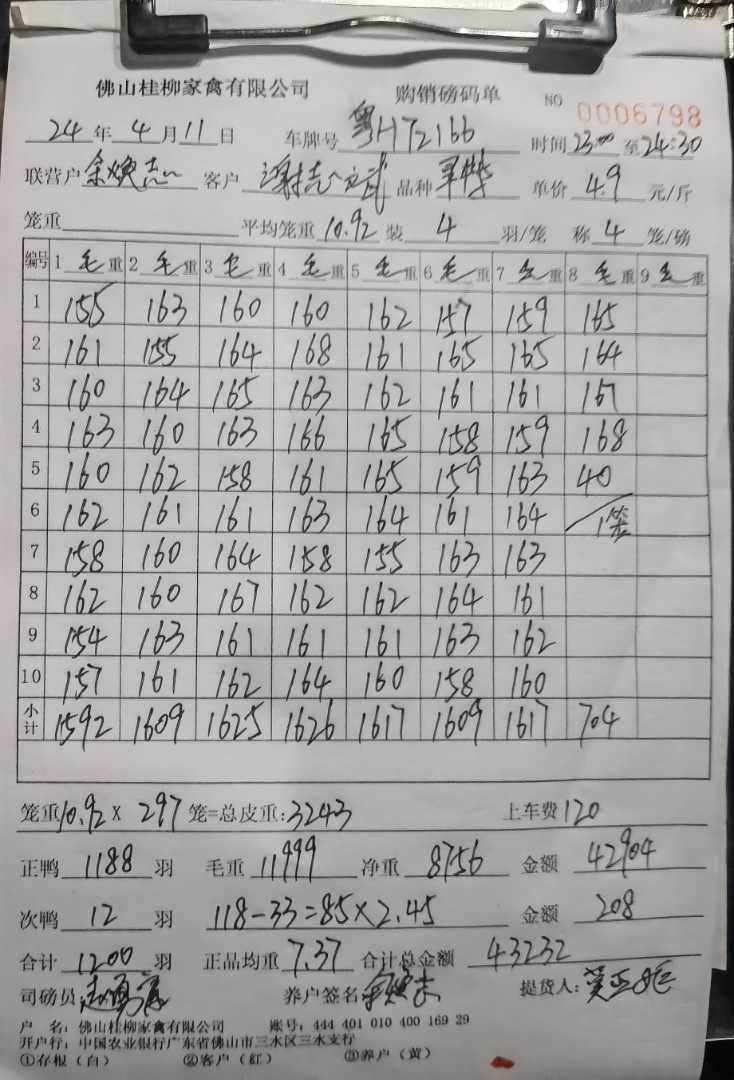 佛山桂柳家禽有限公司 购销磅码单 NO 0006798
24 年 4 月 11 日 车牌号 粤H72166 时间 23:00 至 24:30
联营户 余焕志 客户 谢志 品种 单价 4.9 元/斤
笼重 平均笼重 10.92 装 4 羽/笼 称 4 笼/磅
编号 1 毛重 2 毛重 3 毛重 4 毛重 5 毛重 6 毛重 7 毛重 8 毛重 9 毛重
1 155 163 160 160 162 157 159 165
2 161 155 164 168 161 165 165 164
3 160 164 165 163 162 161 161 167
4 163 160 163 166 165 158 159 168
5 160 162 158 161 165 159 163 40
6 162 161 161 163 164 161 164 1笼
7 158 160 164 158 155 163 163
8 162 160 167 162 162 164 161
9 154 163 161 161 161 163 162
10 157 161 162 164 160 158 160
小计 1592 1609 1625 1626 1617 1609 1617 704
笼重 10.92 X 297 笼=总皮重: 3243 上车费 120
正鸭 1188 羽 毛重 11999 净重 8756 金额 42904
次鸭 12 羽 118-33=85×2.45 金额 208
合计 1200 羽 正品均重 7.37 合计总金额 43232
司磅员 养户签名 余焕志 提货人:
户 名: 佛山桂柳家禽有限公司 账号: 444 401 010 400 169 29
开户行: 中国农业银行广东省佛山市三水区三水支行
①存根（白） ②客户（红） ③养户（黄）